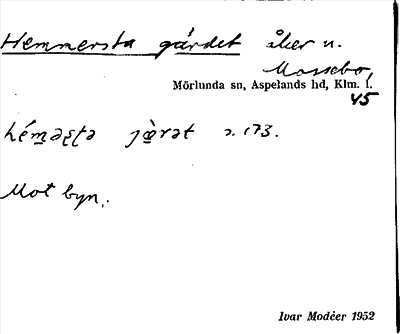 Hemmersta gärdet åker u.
Mossebo,
Mörlunda sn, Aspelands hd, Klm. l.
45
hém̠əʂʈa jæ̀rət 2.173.
Mot byn.
Ivar Modéer 1952